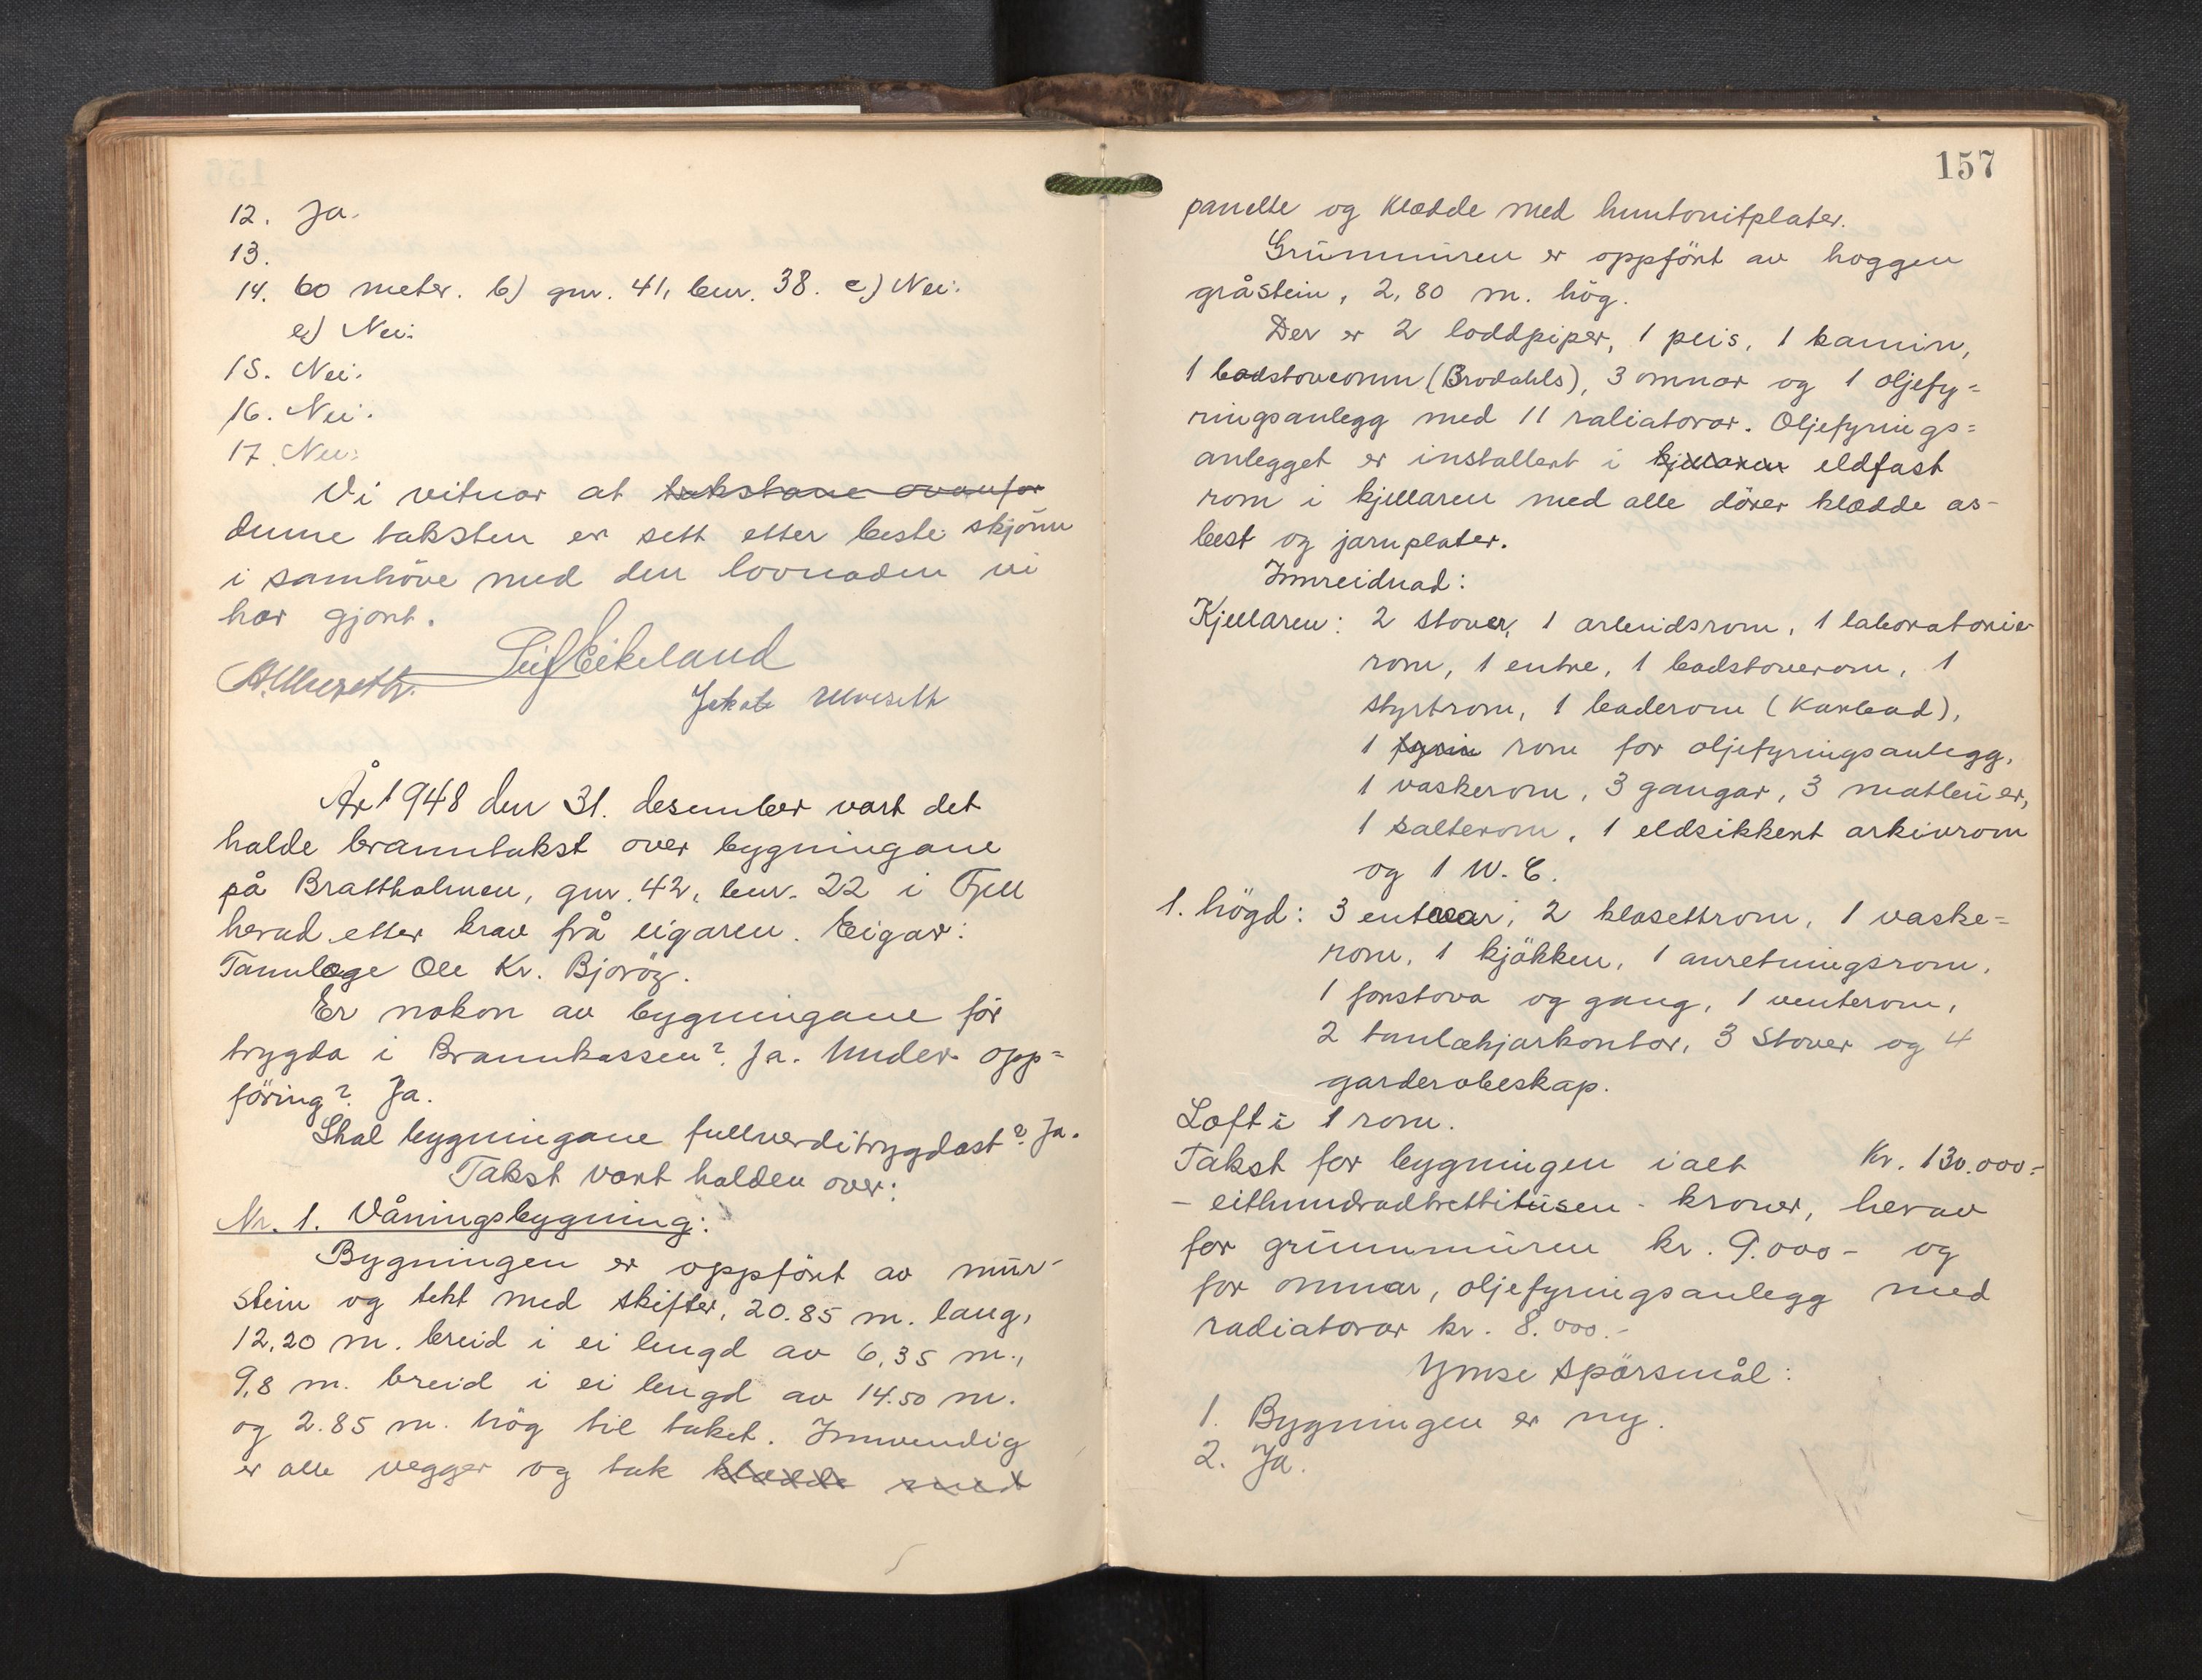 12. Ja.
13.
14. 60 meter. b) gnr. 41, bnr. 38. c) Nei.
e) Nei.
15. Nei.
16. Nei.
17. Nei.
Vi vitnar at takstane ovanfor
denne taksten er sett etter beste skjönn
i samhöve med den lovnaden vi
har gjort.
Leif Eikeland
Jakob Ulveseth
År 1948 den 31. desember vart det
halde branntakst over bygningane
på Brattholmen, gnr. 42, bnr. 22 i Fjell
herad etter krav frå eigaren. Eigar:
Tannlæge Ole Kr. Bjoröy.
Er nokon av bygningane för
trygda i Brannkassen? Ja. Under opp=
föring? Ja.
Skal bygningane fullverditrygdast? Ja.
Takst vart halden over:
Nr. 1. Våningsbygning:
Bygningen er oppfört av mur-
stein og tekt med skifter, 20.85 m. lang,
12,20 m. breid i ei lengd av 6,35 m.,
9,8 m. breid i ei lengd av 14.50 m.
og 2.85 m. hög til taket. Innvendig
er alle vegger og tak klædde med
157
panelte og klædde med huntonitplater.
Grunnmuren er oppfört av hoggen
gråstein, 2,80 m. hög.
Der er 2 loddpiper, 1 peis, 1 kamin,
1 badstoveomn (Brodahls), 3 omnar og 1 oljefy=
ringsanlegg med 11 raliatorar. Oljefyrings=
anlegget er installert i kjellaren eldfast
rom i kjellaren med alle dörer klædde as-
best og jarnplater.
Innreidnad:
Kjellaren: 2 stover, 1 arbeidsrom, 1 laboratorie
rom, 1 entre, 1 badstoverom, 1
styrtrom, 1 baderom (Karbad),
1 fyrin rom for oljefyringsanlegg,
1 vaskerom, 3 gangar, 3 matbuer,
1 salterom, 1 eldsikkert arkivrom
og 1 W.C.
1. högd: 3 entrear, 2 klosettrom, 1 vaske=
rom, 1 kjökken, 1 anretningsrom,
1 forstova og gang, 1 venterom,
2 tanlækjarkontor, 3 stover og 4
garderobeskap.
Loft i 1 rom.
Takst for bygningen ialt Kr. 130.000.-
- eithundradtrettitusen - kroner, herav
for grunnmuren kr. 9.000- og
for omnar, oljefyringsanlegg med
radiatorar kr. 8.000.-
Ymse spörsmål:
1. Bygningen er ny.
2. Ja.